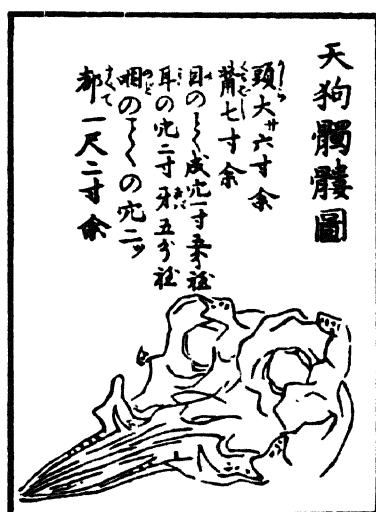 天狗髑髏圖
頭大サ六寸余
觜七寸余
目のごとく成穴一寸五分程
耳の穴二寸牙五分程
咽のごとくの穴二ツ
都一尺二寸余